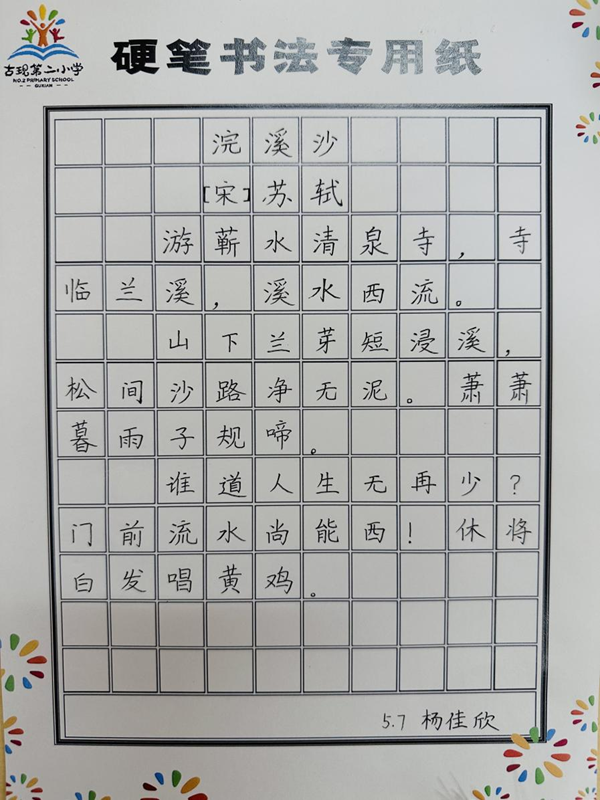 古现第二小学
NO.2 PRIMARY SCHOOL
GUXIAN
硬笔书法专用纸
浣溪沙
[宋]苏轼
游蕲水清泉寺，寺
临兰溪，溪水西流。
山下兰芽短浸溪，
松间沙路净无泥。萧萧
暮雨子规啼。
谁道人生无再少？
门前流水尚能西！休将
白发唱黄鸡。
5.7 杨佳欣